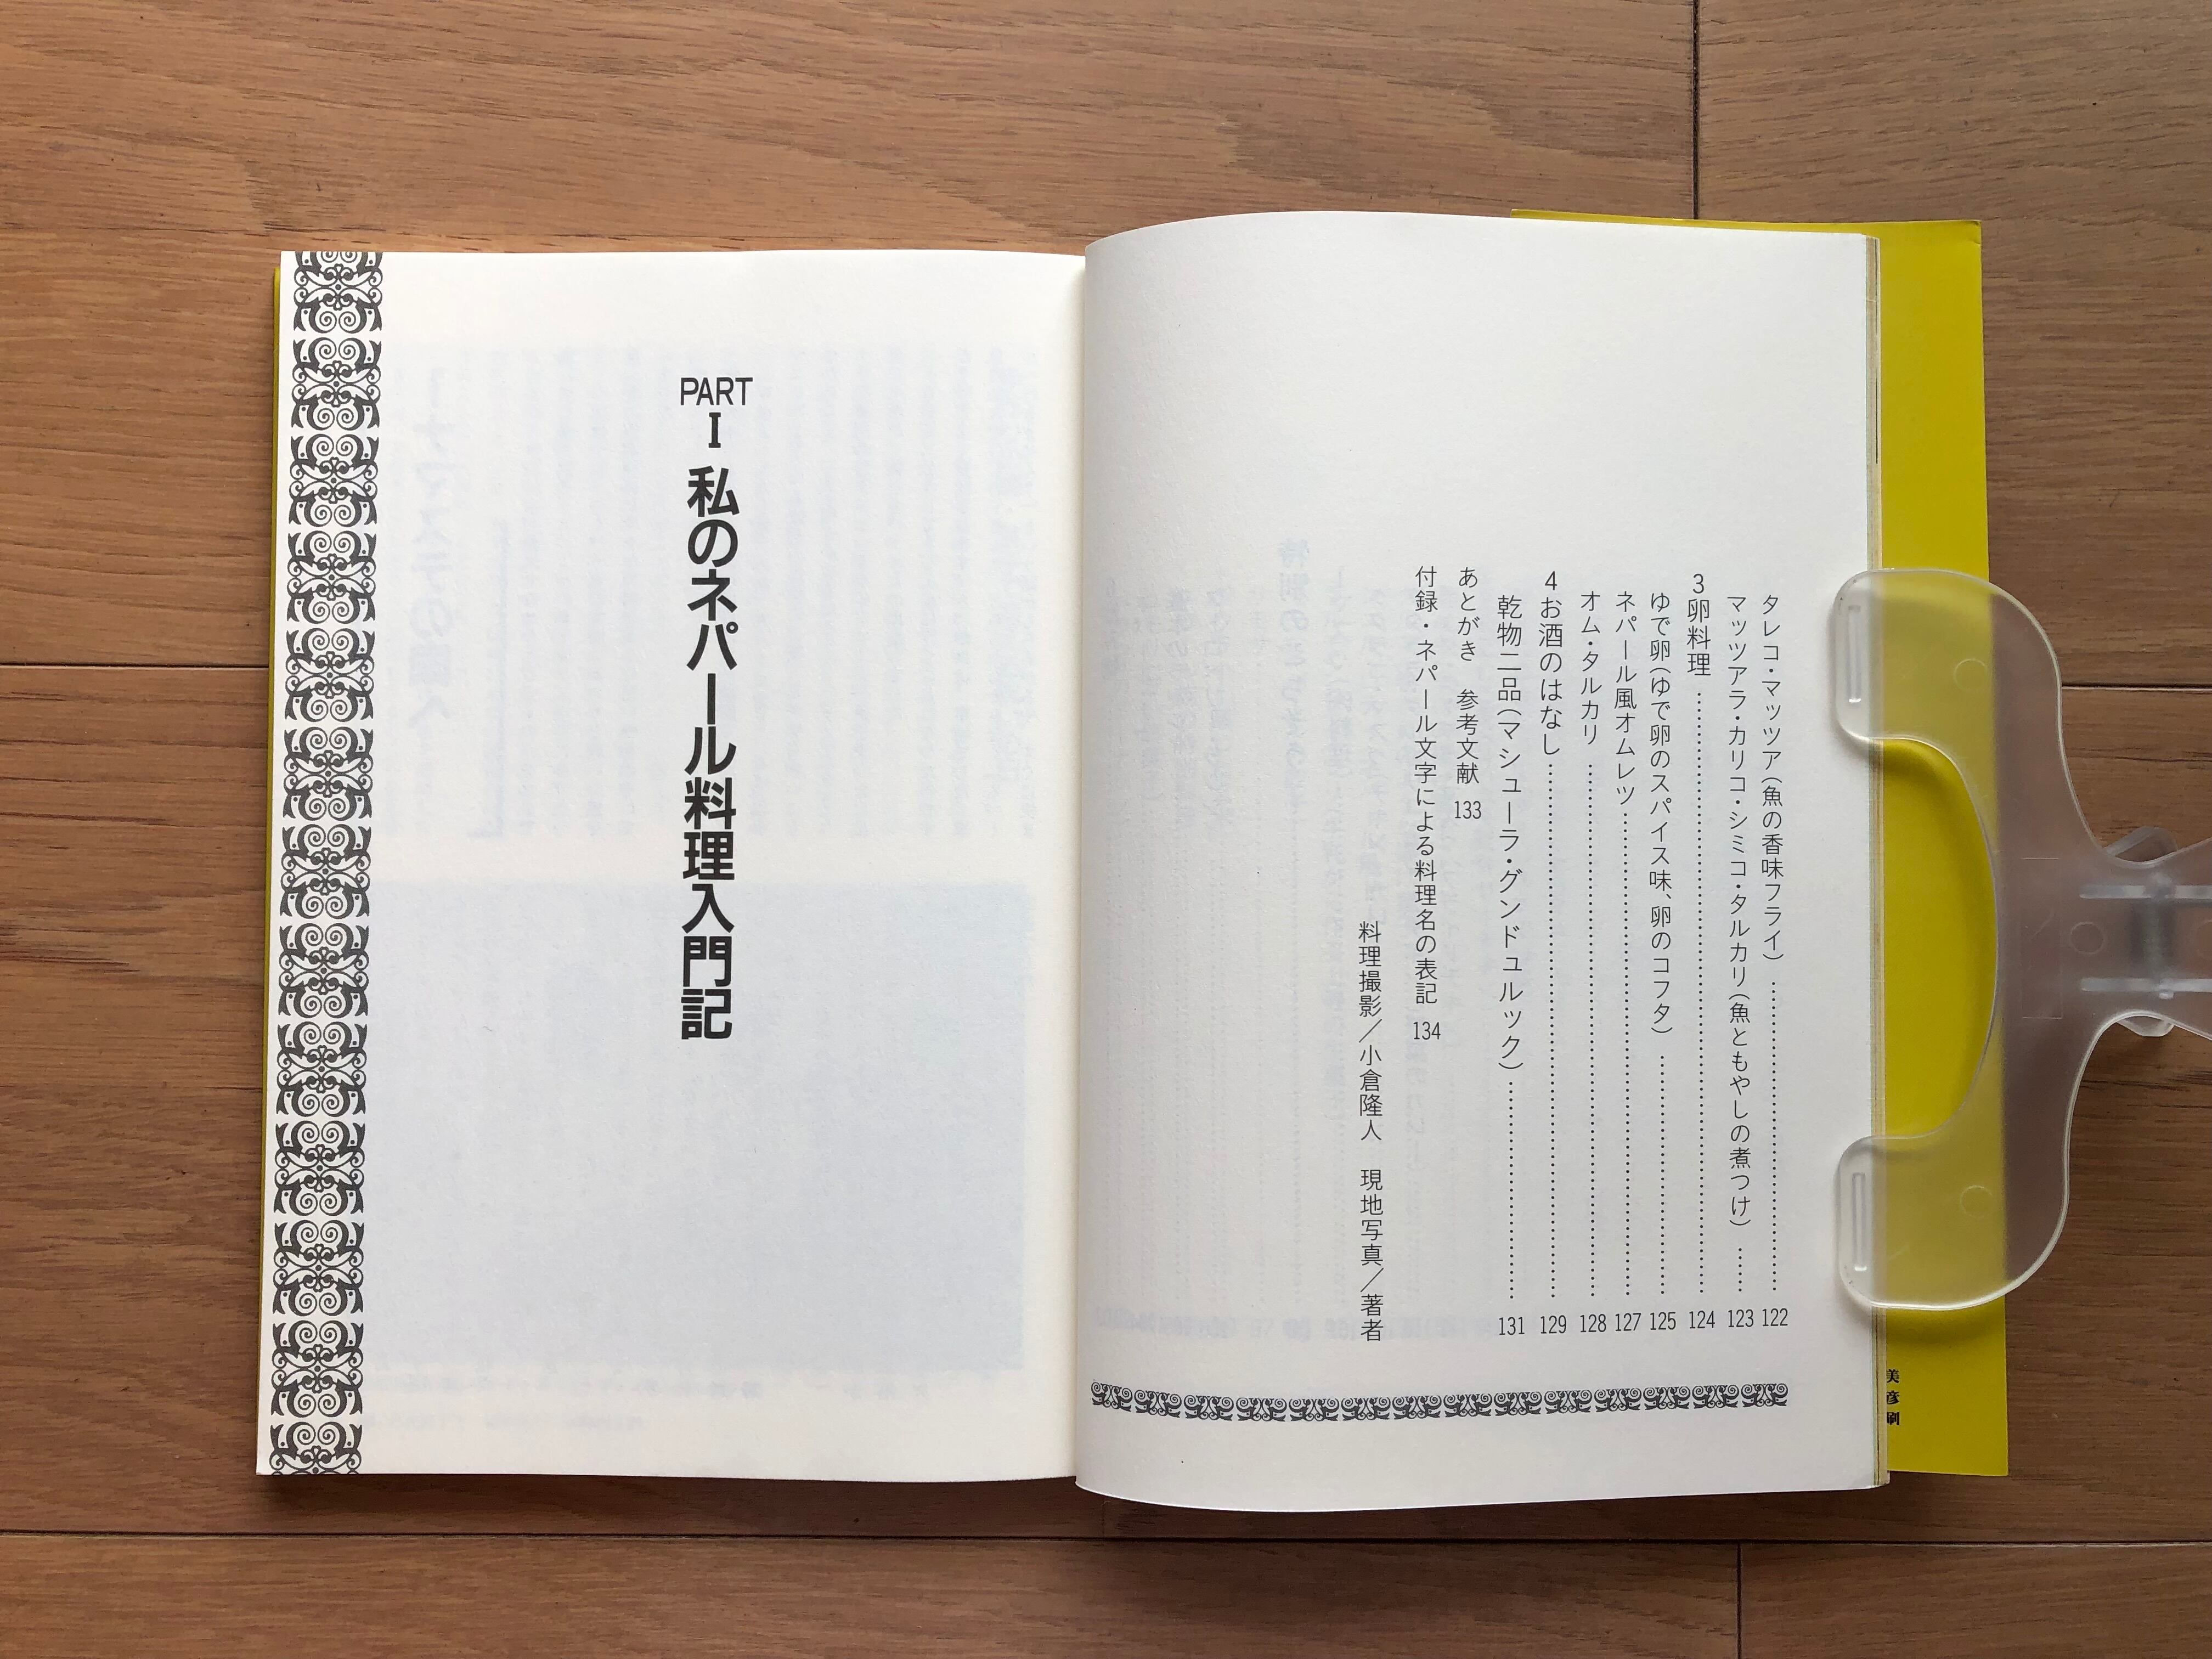 タレコ・マッツア(魚の香味フライ)……………………122
マッツアラ・カリコ・シミコ・タルカリ(魚ともやしの煮つけ)……123
3 卵料理……………………124
ゆで卵(ゆで卵のスパイス味、卵のコフタ)……………………125
ネパール風オムレツ……………………127
オム・タルカリ……………………128
4 お酒のはなし……………………129
乾物二品(マシューラ・グンドュルック)……………………131
あとがき 参考文献 133
付録・ネパール文字による料理名の表記 134
料理撮影／小倉隆人 現地写真／著者
PART I 私のネパール料理入門記
美
彦
刷